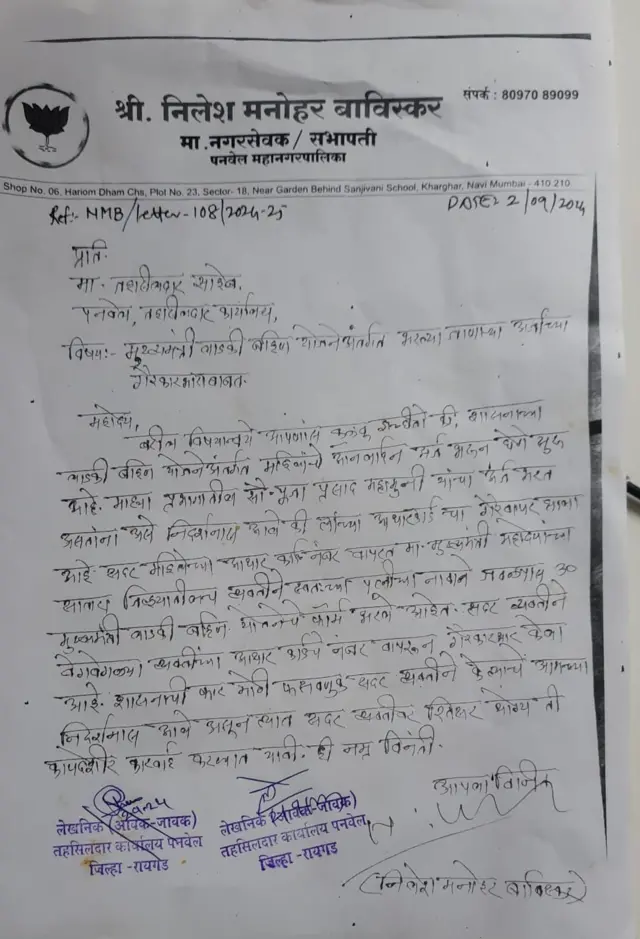 श्री. निलेश मनोहर बाविस्कर
संपर्क : 80970 89099
मा.नगरसेवक / सभापती
पनवेल महानगरपालिका
Shop No. 06, Hariom Dham Chs, Plot No. 23, Sector- 18, Near Garden Behind Sanjivani School, Kharghar, Navi Mumbai - 410 210
Ref:- NMB/Letter-108/2024-25
DATE: 2/09/2024
प्रति.
मा. तहसीलदार साहेब,
पनवेल, तहसीलदार कार्यालय,
विषय:- मुख्यमंत्री लाडकी बहिण योजनेअंतर्गत भरल्या जाणाऱ्या अर्जाच्या
गैरकारभाराबाबत.
महोदय,
वरील विषयान्वये आपणांस कळवू इच्छीतो की, शासनाच्या
लाडकी बहिण योजनेअंतर्गत महिलांचे ऑनलाईन अर्ज भरून घेणे सुरू
आहे. माझ्या प्रभागातील सौ. पूजा प्रसाद महामुनी यांचा अर्ज भरत
असतांना असे निदर्शनास आले की त्यांच्या आधारकार्ड चा गैरवापर झाला
आहे. सदर महिलेच्या आधार कार्ड नंबर वापरत मा. मुख्यमंत्री महोदयांच्या
सातारा जिल्ह्यातीलच व्यक्तीने स्वतःच्या पत्नीच्या नावाने जवळपास 30
मुख्यमंत्री लाडकी बहिण योजनेचे फॉर्म भरले आहेत. सदर व्यक्तीने
वेगवेगळ्या व्यक्तींच्या आधार कार्डचे नंबर वापरून गैरकारभार केला
आहे. शासनाची फार मोठी फसवणूक सदर व्यक्तीने केल्याचे आमच्या
निदर्शनास आले असून त्यात सदर व्यक्तीवर रितसर योग्य ती
कायदेशीर कारवाई करण्यात यावी. ही नम्र विनंती.
आपला विश्वासू
लेखनिक (आवक-जावक)
तहसिलदार कार्यालय पनवेल
जिल्हा -रायगड
लेखनिक (आवक-जावक)
तहसिलदार कार्यालय पनवेल
जिल्हा -रायगड
(निलेश मनोहर बाविस्कर)